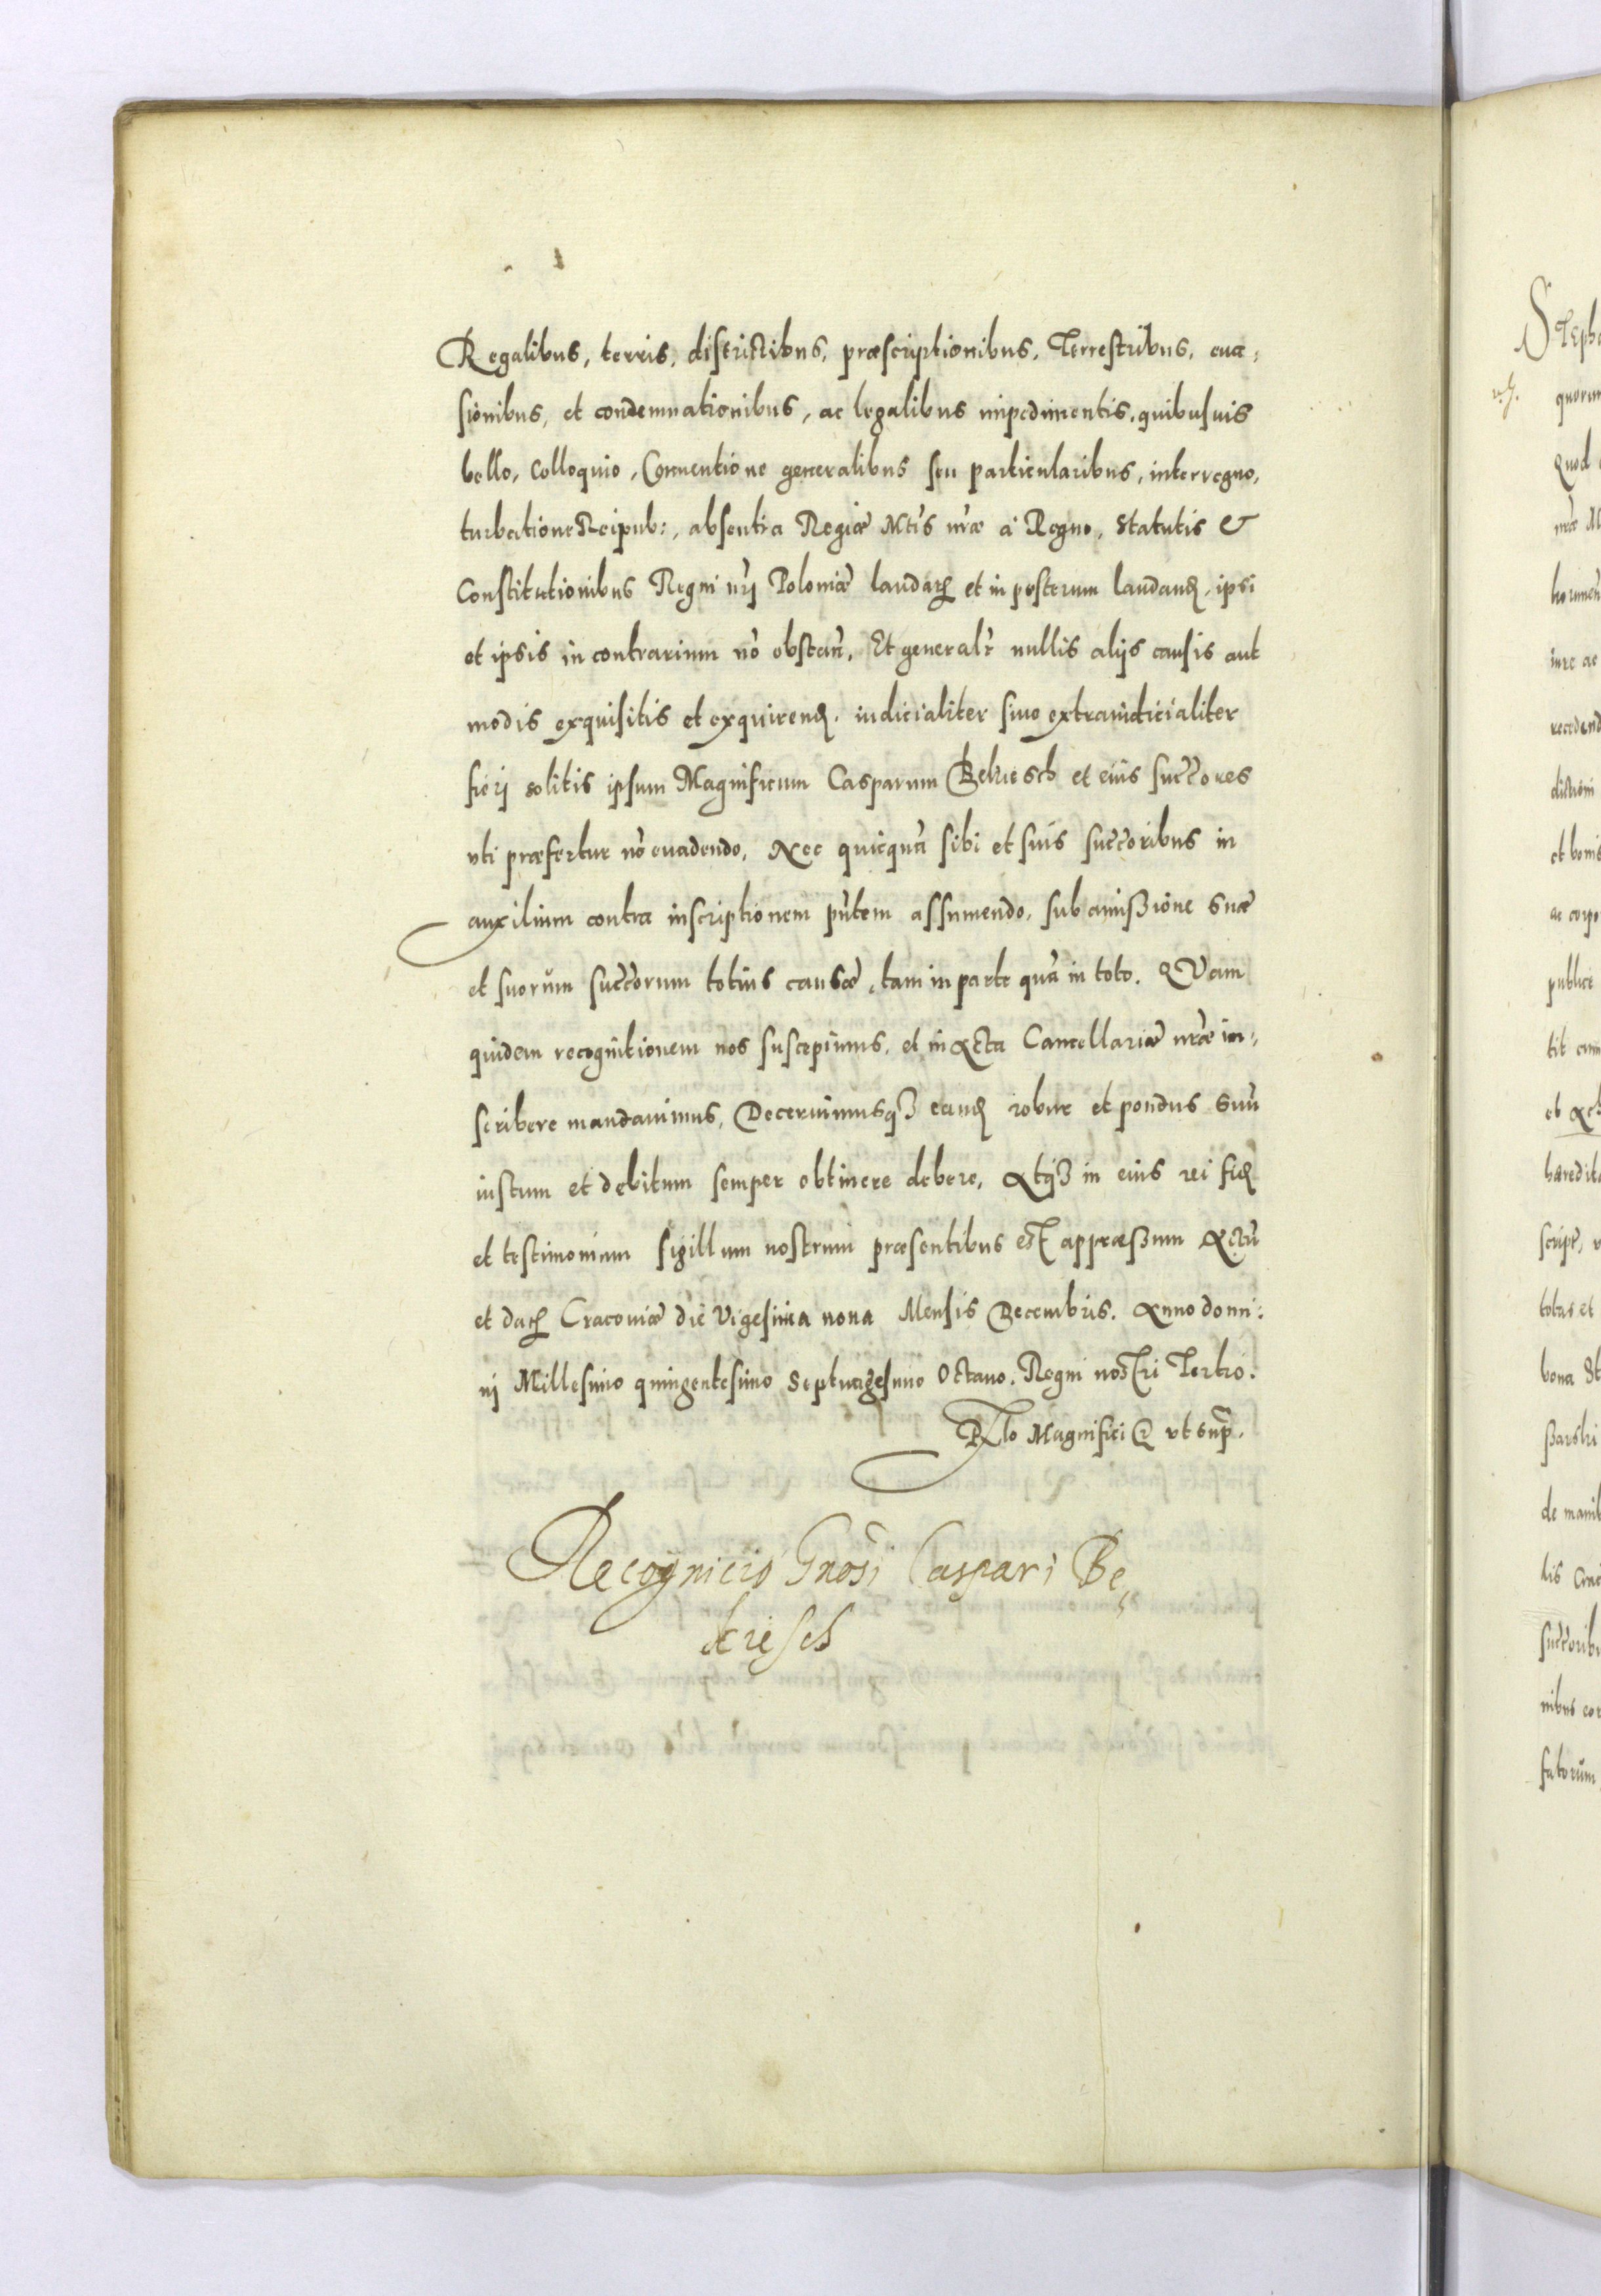 Regalibus, terris, districtibus, præscriptionibus, Terrestribus, eua,
sionibus, et condemnationibus, ac legalibus impedimentis, quibusuis
bello, Colloquio, Conuentione generalibus seu particularibus, interregno,
turbatione Reipub:, absentia Regiæ Mtis nræ à Regno, Statutis &
Constitutionibus Regni nrj Poloniæ laudat et in posterum laudand, ipsi
et ipsis in contrarium nõ obstañ, Et generalr nullis alijs causis aut
modis exquisitis et exquirend, iudicialiter siue extraiudicialiter
fierj solitis ipsum Magnificum Casparum Bekiesch et eius succores
vti præfertur nõ euadendo, Nec quicquã sibi et suis succoribus in
auxilium contra inscriptionem pntem assumendo, sub amißione suæ
et suorum succorum totius causæ, tam in parte quã in toto. QVam
quidem recognitionem nos suscepimus, et in Acta Cancellariæ nræ in,
scribere mandauimus, Decernimusqʒ eand robur et pondus suũ
iustum et debitum semper obtinere debere, Atqʒ in eius rei fid
et testimonium sigillum nostrum præsentibus est appræßum Actũ
et dat Cracouiæ die Vigesima nona Mensis Decembris. Anno domi:
nj Millesimo quingentesimo Septuagesimo Octauo. Regni nostri Tertio.
Rlo Magnifici & vt sup.
Recognicio Gnosi Caspari Be,
kiesch
Steph
quorum
Quod
nræ M
iure ac
recedend
et bonis
ac corpo
publice
tit
et Act
hæredita
script,
totas et
bona
de manib
lis
succorib
nibus